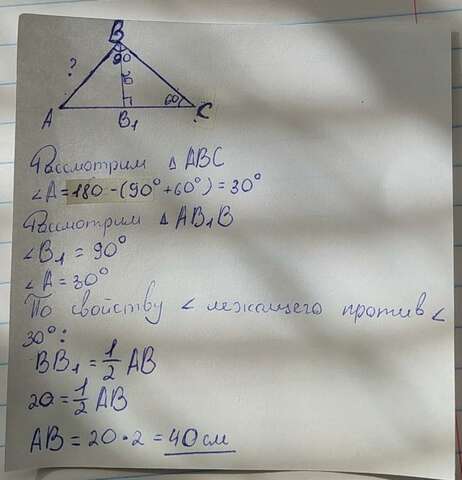 B
90
?
20
60
A
B₁
C
Рассмотрим △ ABC
∠A = 180 - (90° + 60°) = 30°
Рассмотрим △ AB₁B
∠B₁ = 90°
∠A = 30°
По свойству ∠ лежащего против ∠
30°:
BB₁ = 1/2 AB
20 = 1/2 AB
AB = 20 · 2 = 40 см